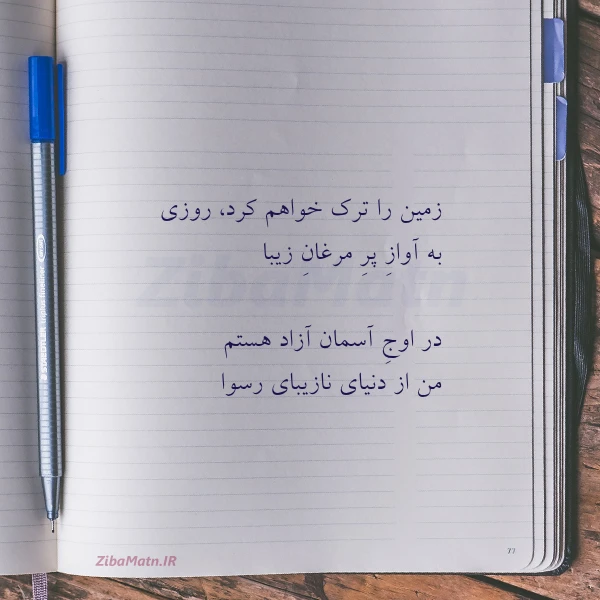 زمین را ترک خواهم کرد، روزی
به آوازِ پرِ مرغانِ زیبا
ZibaMatn
در اوجِ آسمان آزاد هستم
من از دنیای نازیبای رسوا
ZibaMatn.IR